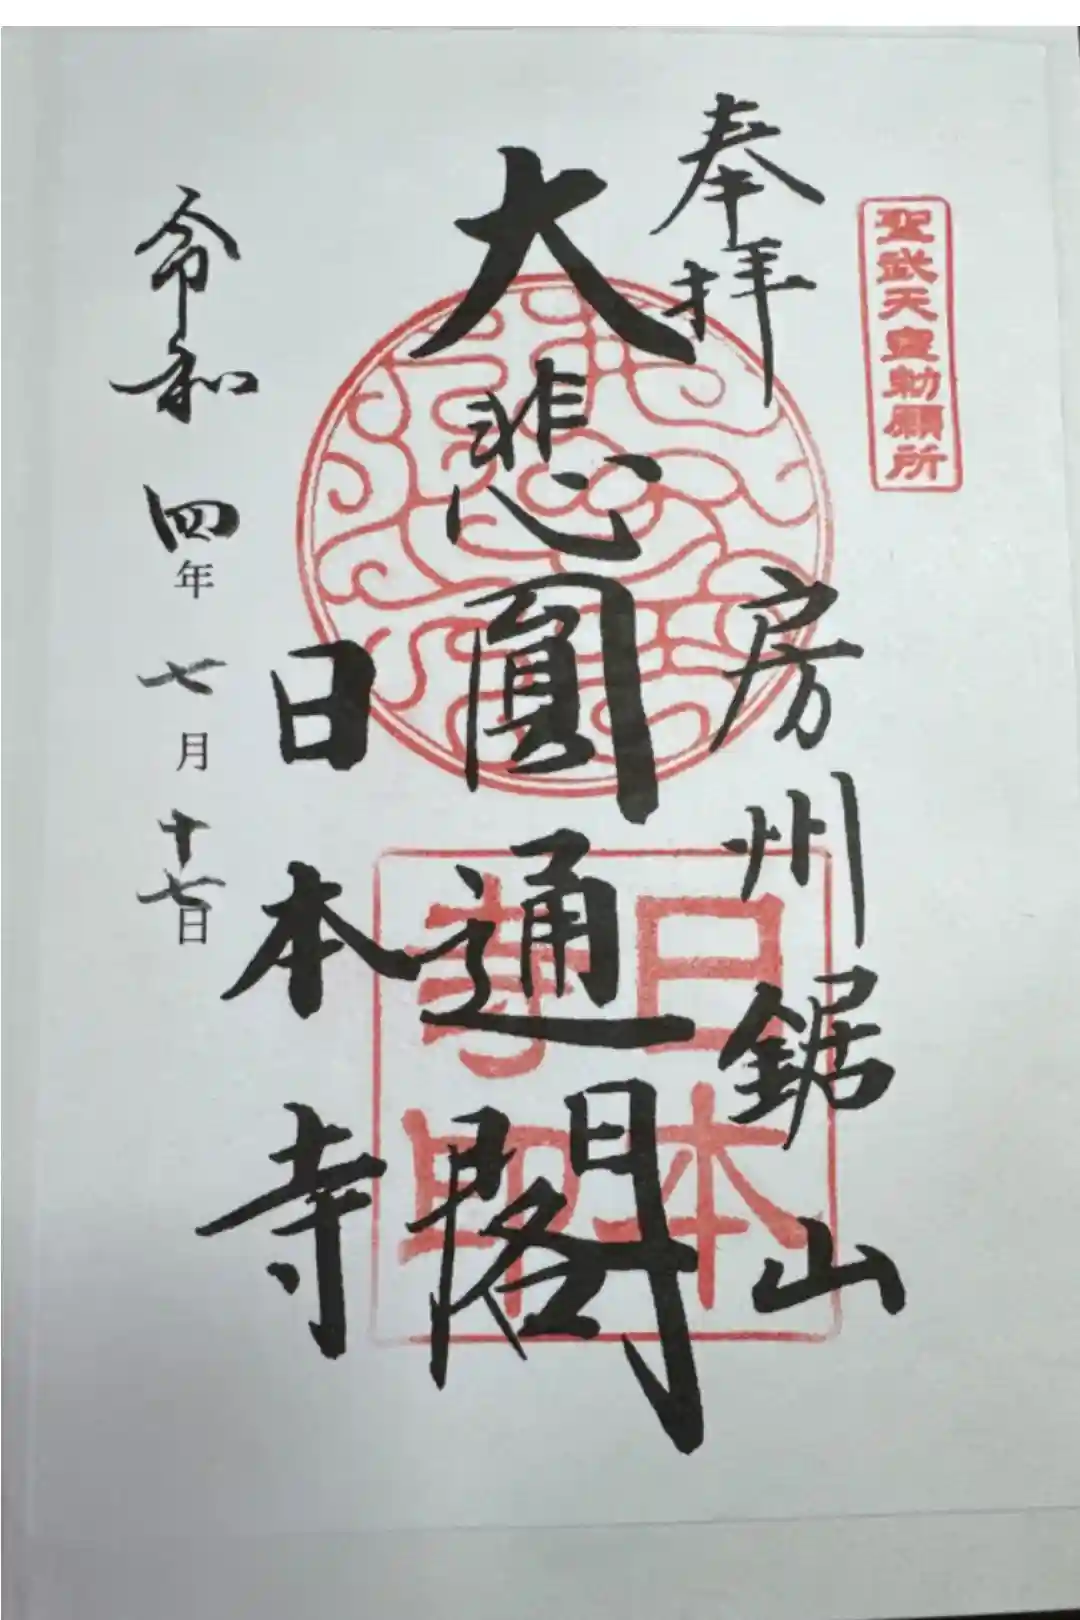 聖武天皇勅願所
奉拝
房州鋸山
大悲圓通閣
日本寺
令和四年七月十七日
日本
寺印